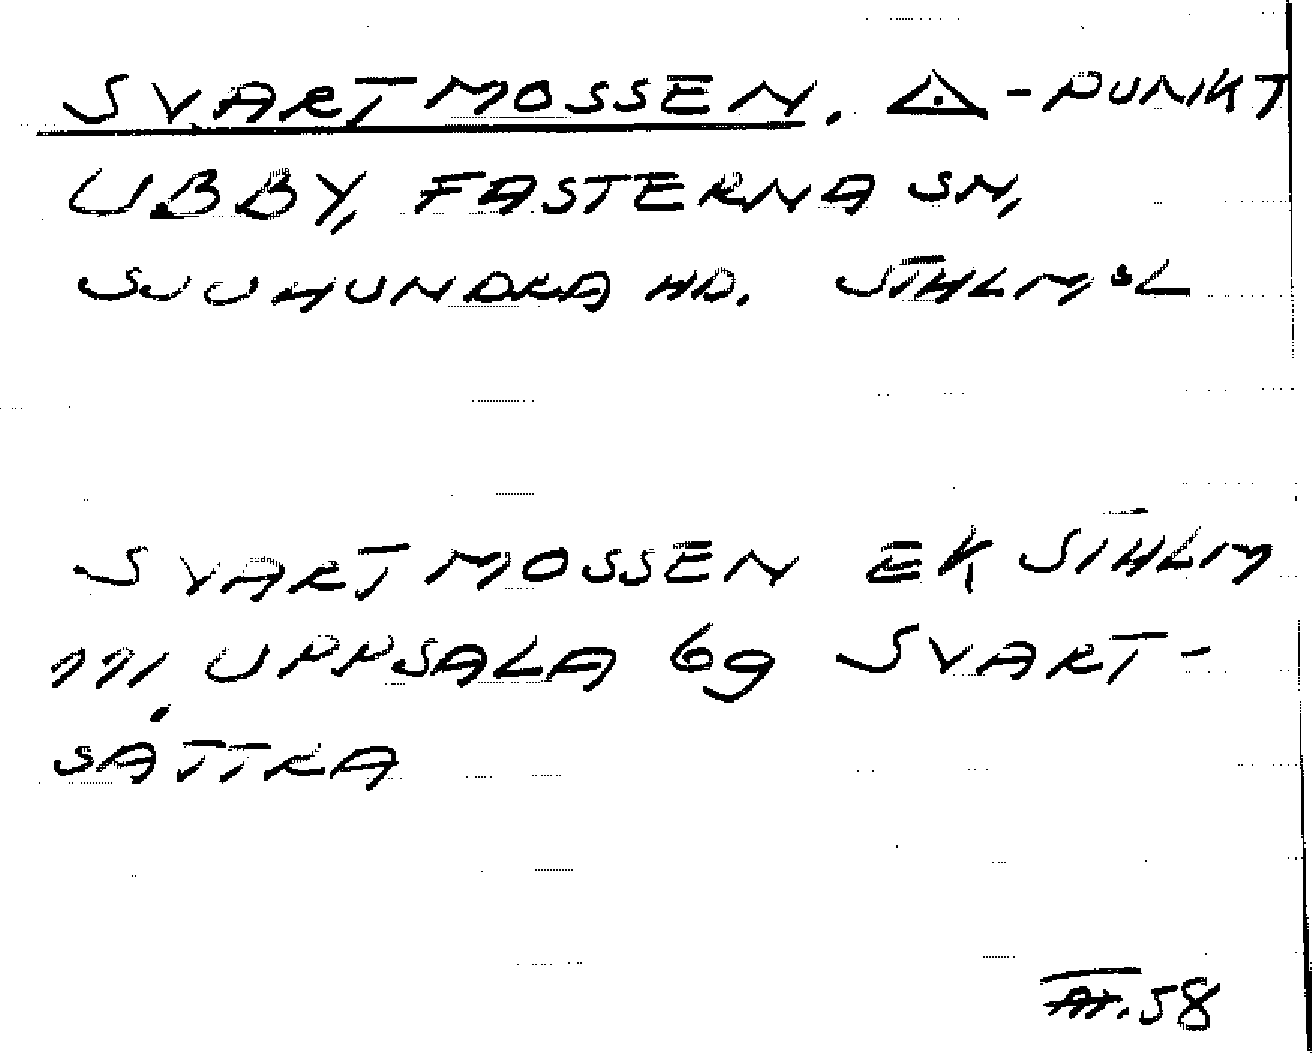 SVARTMOSSEN. △-PUNKT
UBBY, FASTERNA SN,
SJUHUNDRA HD. STHLMSL
SVARTMOSSEN EK STHLM
111. UPPSALA 69 SVART-
SÄTTRA
58